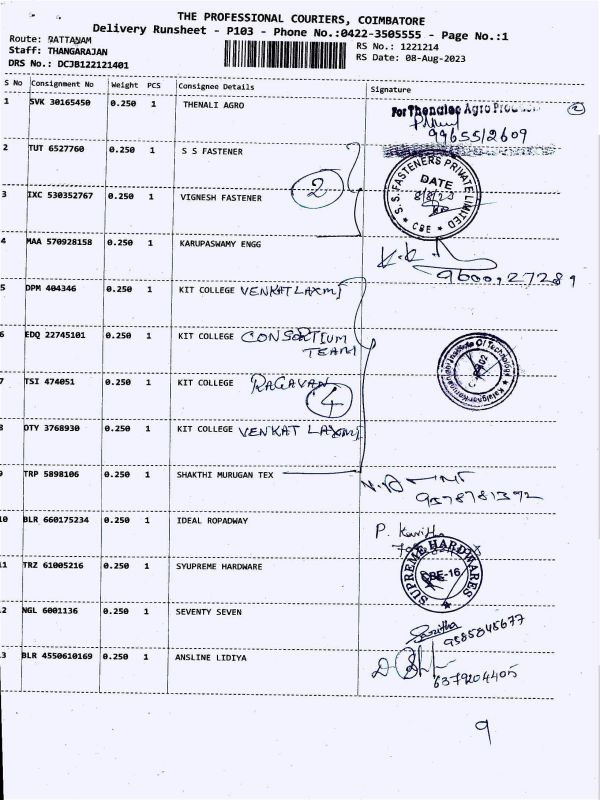 THE PROFESSIONAL COURIERS, COIMBATORE
Delivery Runsheet - P103 - Phone No.:0422-3505555 - Page No.:1
Route: PATTANAM
Staff: THANGARAJAN
DRS No.: DCJB122121401
RS No.: 1221214
RS Date: 08-Aug-2023
S No Consignment No Weight PCS Consignee Details Signature
1 SVK 30165450 0.250 1 THENALI AGRO
For Thenalee Agro
2
9965512609
2 TUT 6527760 0.250 1 S S FASTENER
2
S.S. FASTENERS PRIVATE LIMITED
DATE
8/8/23
CBE
3 IXC 530352767 0.250 1 VIGNESH FASTENER
4 MAA 570928158 0.250 1 KARUPASWAMY ENGG
9600127281
5 DPM 404346 0.250 1 KIT COLLEGE VENKAT LAXMI
6 EDQ 22745101 0.250 1 KIT COLLEGE CONSORTIUM
TEAM
Institute Of Technology
7 TSI 474051 0.250 1 KIT COLLEGE RAGAVAN
4
8 OTY 3768930 0.250 1 KIT COLLEGE VENKAT LAXMI
9 TRP 5898106 0.250 1 SHAKTHI MURUGAN TEX
9578781392
10 BLR 660175234 0.250 1 IDEAL ROPADWAY
P. Kavitha
11 TRZ 61005216 0.250 1 SYUPREME HARDWARE
SUPREME HARDWARES
CBE-16
12 NGL 6001136 0.250 1 SEVENTY SEVEN
9585848677
13 BLR 4550610169 0.250 1 ANSLINE LIDIYA
6379204405
9